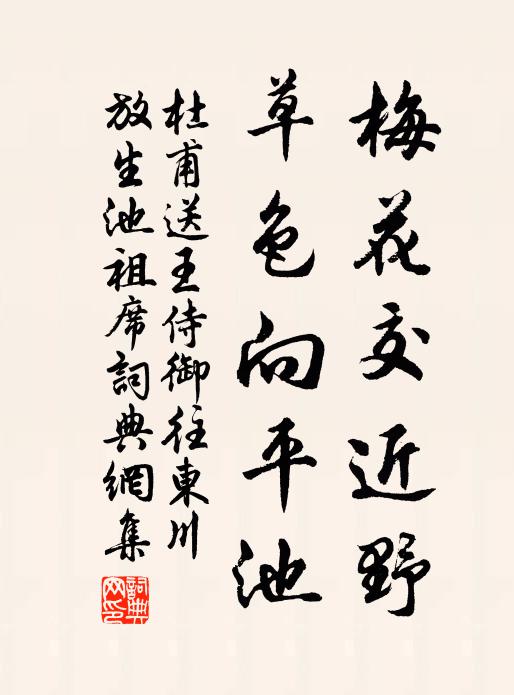 梅花交近野
草色向平池
杜甫送王侍御往東川
放生池祖席詞典網集
詞典网印